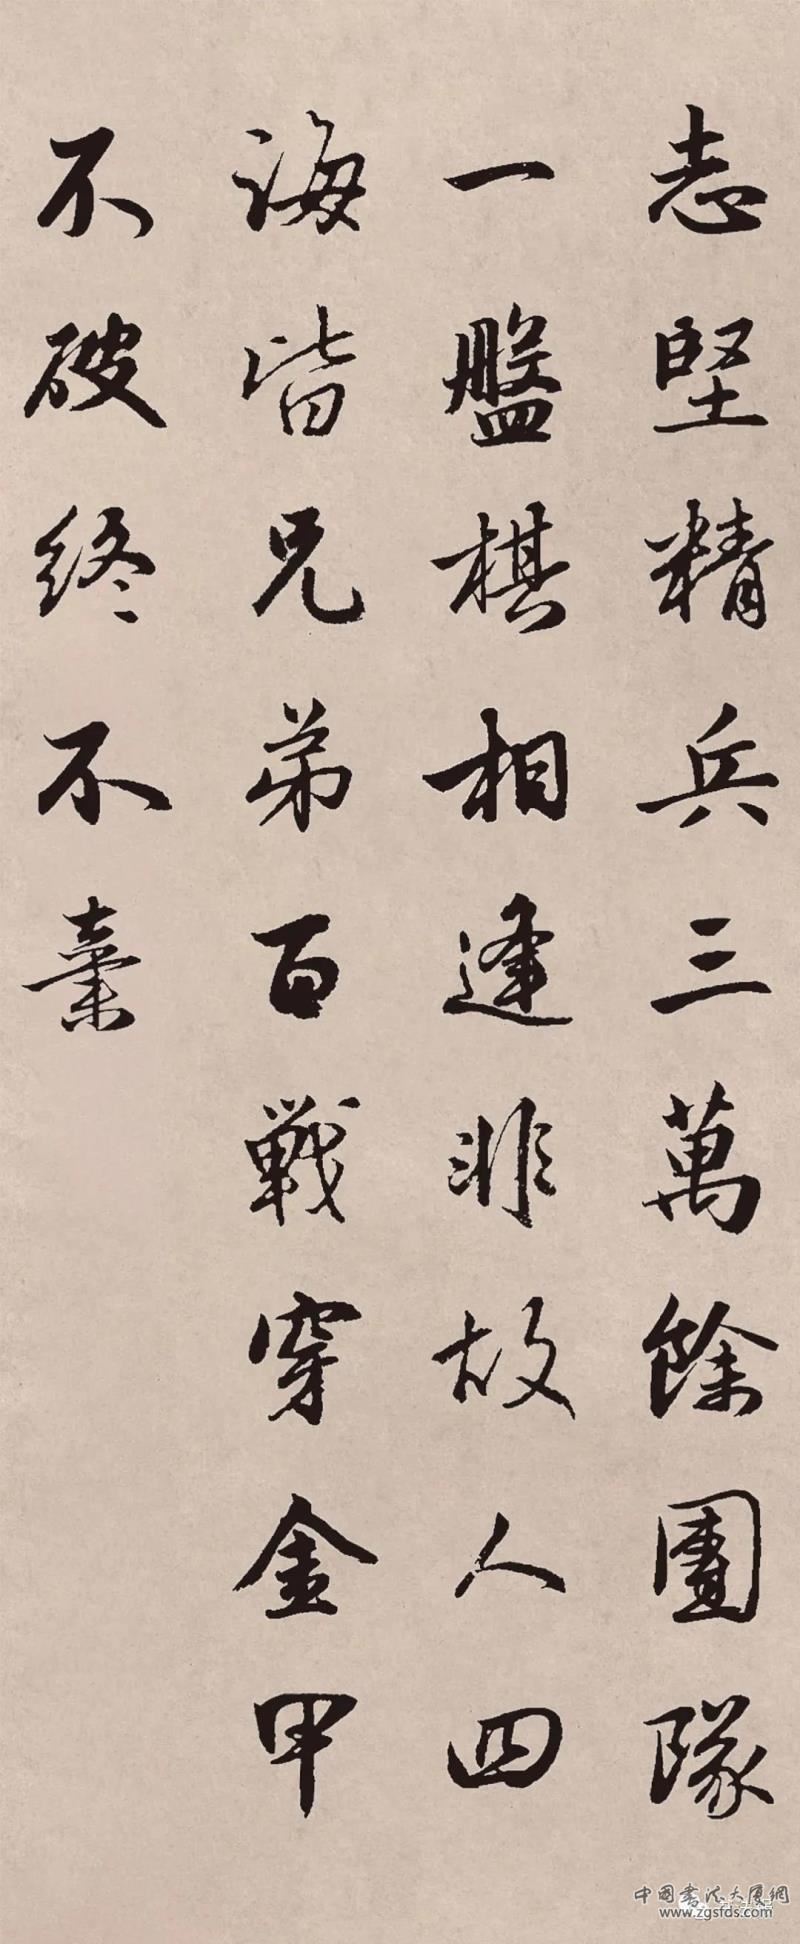 志堅精兵三萬餘團隊
一盤棋相逢非故人四
誨皆兄弟百戰穿金甲
不破終不
中國書法大廈網
www.zgsfds.com